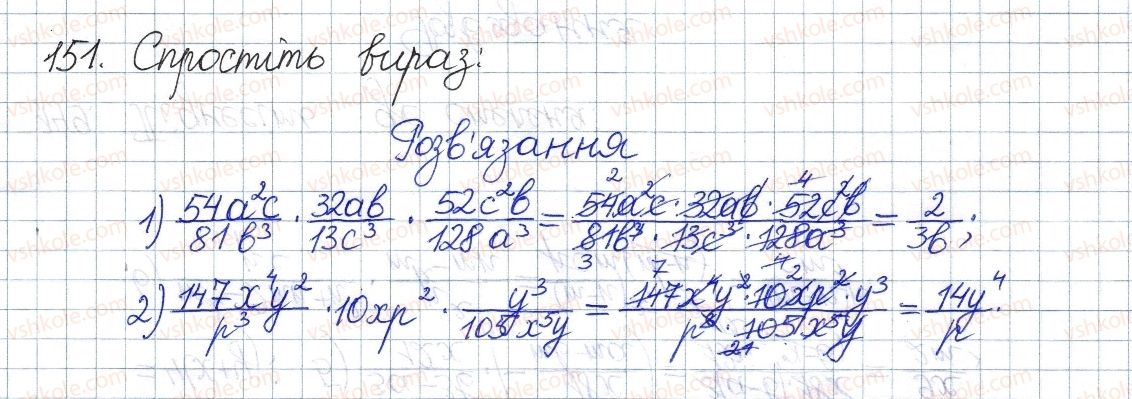 151. Спростіть вираз:
Розв'язання
1) 54a²c/81b³ · 32ab/13c³ · 52c²b/128a³ = 54a²c · 32ab · 52c²b / 81b³ · 13c³ · 128a³ = 2/3b;
2) 147x⁴y²/p³ · 10xp² · y³/105x⁵y = 147x⁴y² · 10xp² · y³ / p³ · 105x⁵y = 14y⁴/p.